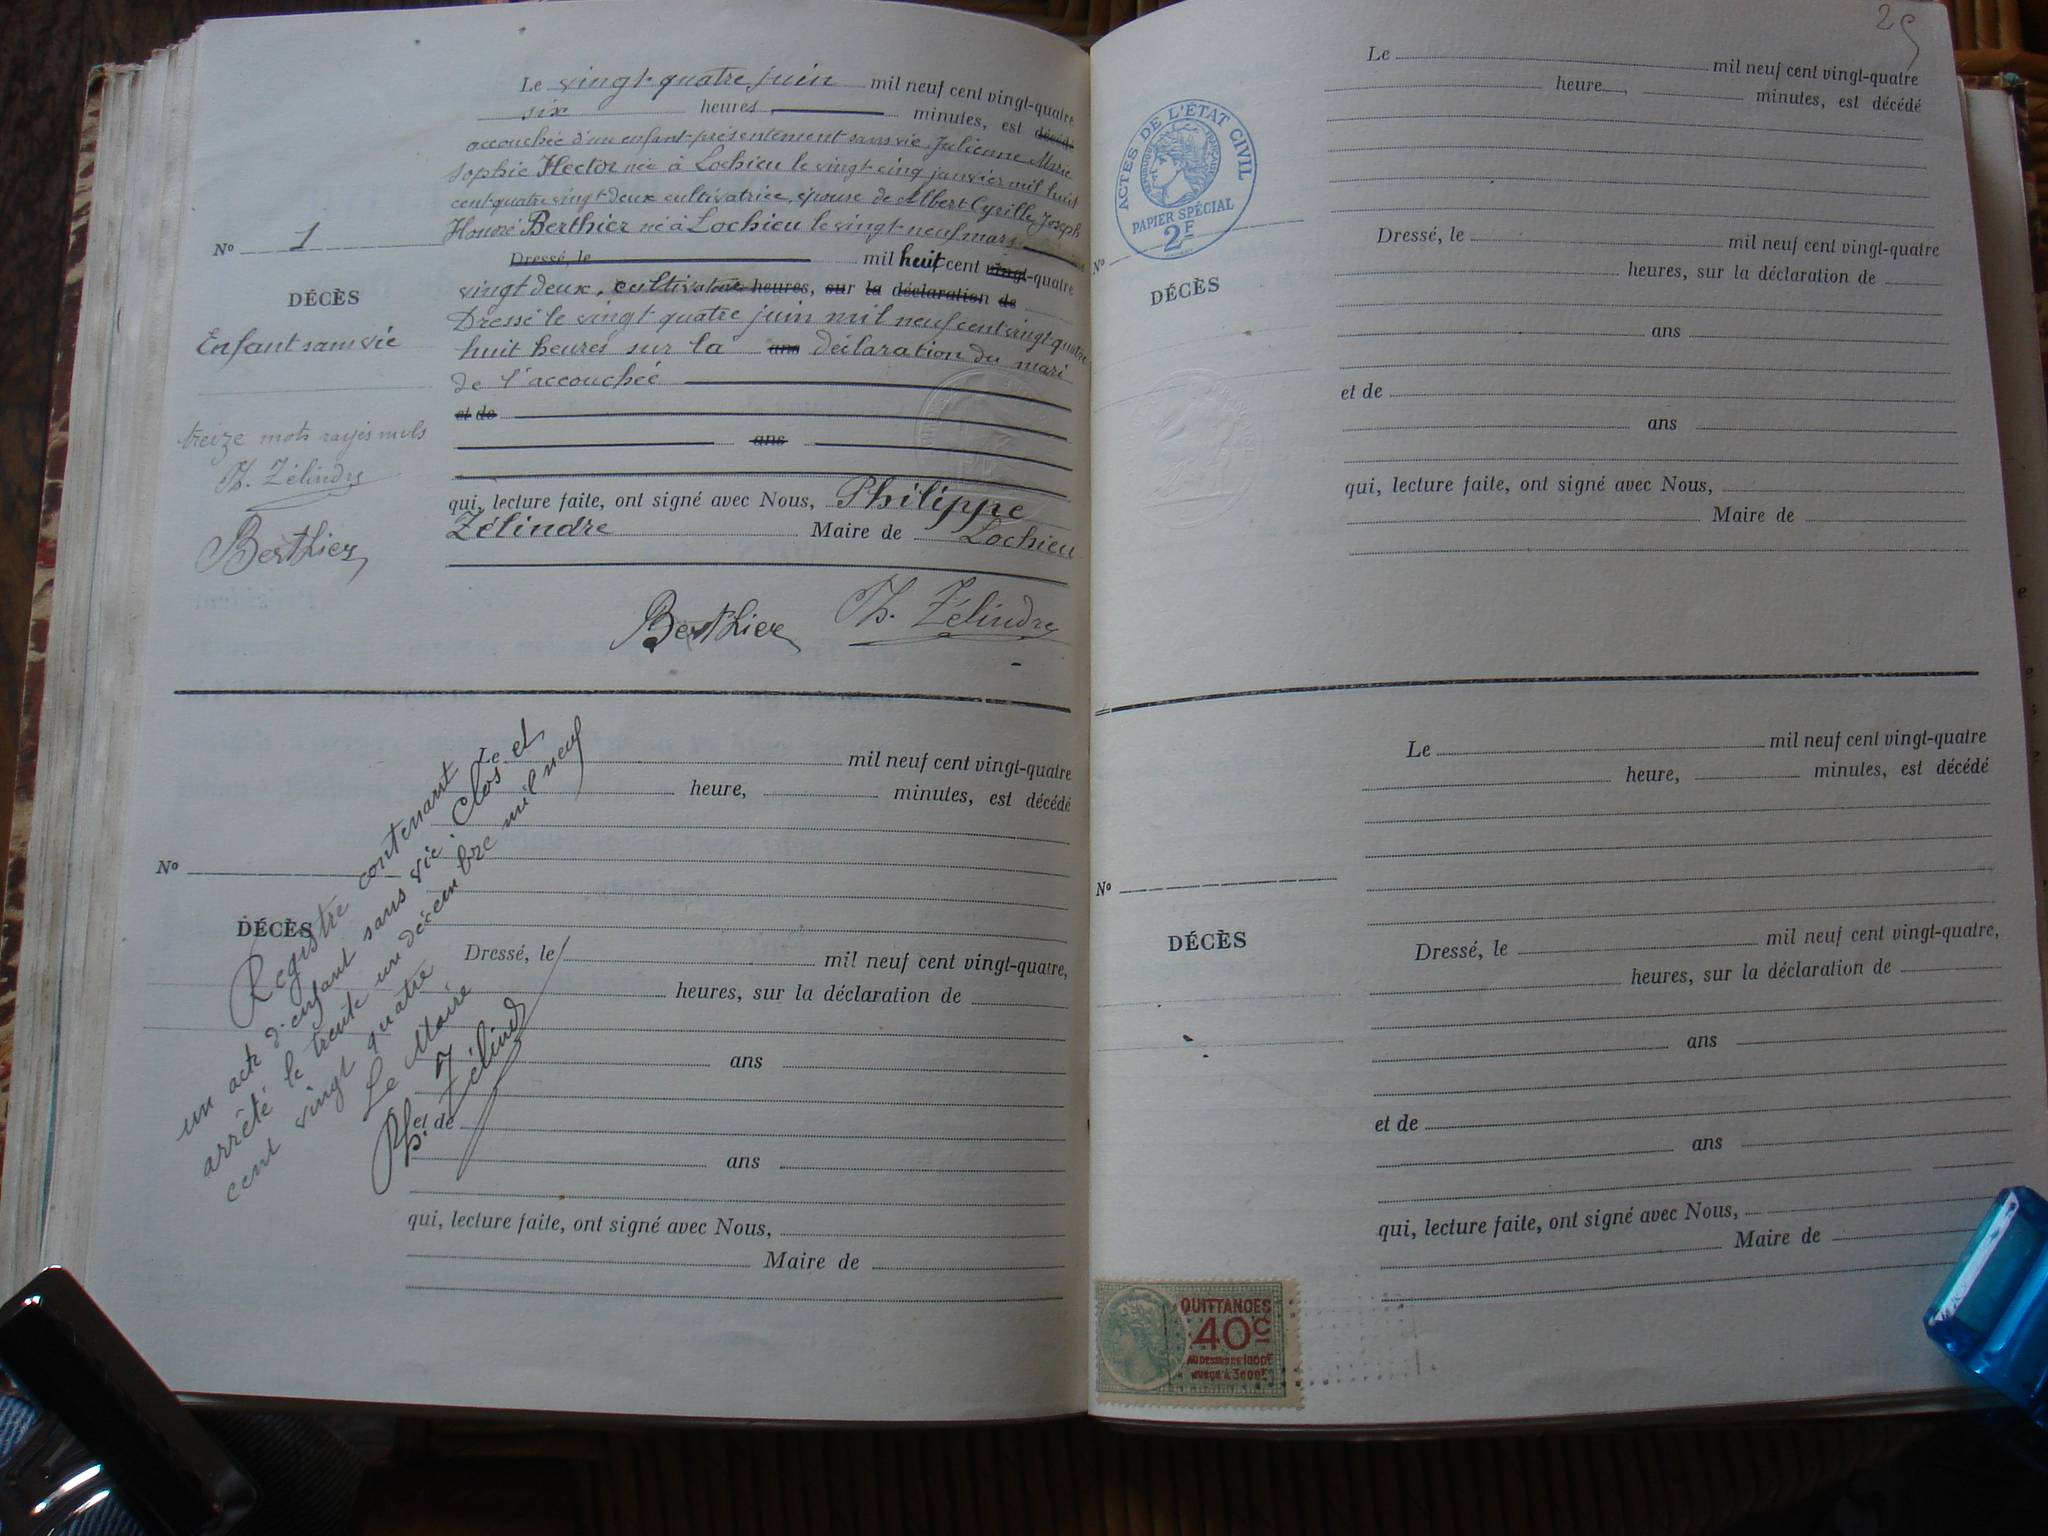 Le vingt-quatre juin mil neuf cent vingt-quatre
six heures minutes, est décédé
accouchée d'un enfant présentement sans vie Julienne Marie
Sophie Hector née à Lochieu le vingt-cinq janvier mil huit
cent quatre vingt-deux cultivatrice, épouse de Albert Cyrille Joseph
Honoré Berthier né à Lochieu le vingt-neuf mars
Nº 1
Dressé, le mil huit cent vingt-quatre
vingt deux, cultivateur heures, sur la déclaration de
Dressé le vingt quatre juin mil neuf cent vingt quatre
huit heures sur la ans déclaration du mari
de l'accouchée
et de
ans
qui, lecture faite, ont signé avec Nous, Philippe
Zélindre Maire de Lochieu
Berthier Ph. Zélindre
DÉCÈS
Enfant sans vie
treize mots rayés nuls
Ph. Zélindre
Berthier
Le mil neuf cent vingt-quatre
heure, minutes, est décédé
Nº
DÉCÈS
Dressé, le mil neuf cent vingt-quatre,
heures, sur la déclaration de
ans
et de
ans
qui, lecture faite, ont signé avec Nous,
Maire de
Registre contenant
un acte d'enfant sans vie Clos et
arrêté le trente un décembre mil neuf
cent vingt quatre
Le Maire
Ph. Zélindre
Le mil neuf cent vingt-quatre
heure, minutes, est décédé
ACTES DE L'ÉTAT CIVIL
RÉPUBLIQUE FRANÇAISE
PAPIER SPÉCIAL
2F
Nº
DÉCÈS
Dressé, le mil neuf cent vingt-quatre
heures, sur la déclaration de
ans
et de
ans
qui, lecture faite, ont signé avec Nous,
Maire de
Le mil neuf cent vingt-quatre
heure, minutes, est décédé
Nº
DÉCÈS
Dressé, le mil neuf cent vingt-quatre,
heures, sur la déclaration de
ans
et de
ans
qui, lecture faite, ont signé avec Nous,
Maire de
QUITTANCES
40C
AU DESSUS DE 1000F
JUSQU'À 3000F